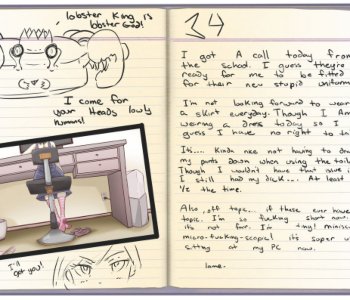 lobster King is
lobster God!
I come for
your Heads lowly
humans!
I'll
get you!
34
I got A call today from
the school. I guess they're
ready for me to be fitted
for their new stupid uniform
I'm not looking forward to wear
a skirt everyday. Though I Am
wearing a dress today so I
guess I have no right to
It's.... Kinda nice not having to
my pants down when using the toile
Though I wouldn't have that issue
I still had my dick... At least
1/2 the time.
Also, off topic.. if these ever have
topic. I'm so fucking short now:
it's not fair. I'm tiny! minisc
micro-fucking-scopic! it's super
sitting at my PC now.
lame.